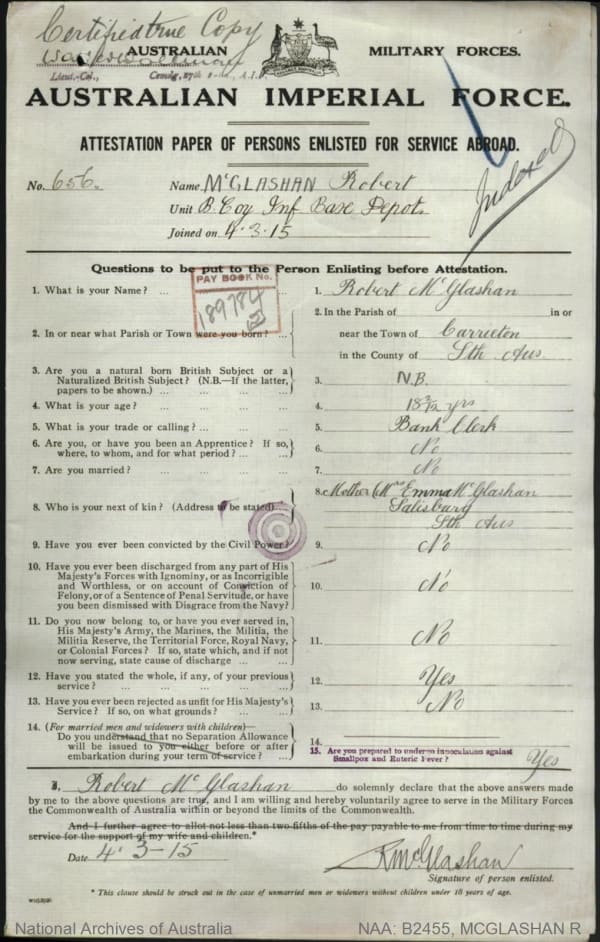 Certified true Copy
AUSTRALIAN MILITARY FORCES.
Lieut.-Col., Comdg. 27th A.I.F.
AUSTRALIAN IMPERIAL FORCE.
ATTESTATION PAPER OF PERSONS ENLISTED FOR SERVICE ABROAD.
Indexed
No. 656. Name McGLASHAN Robert
Unit B. Coy Inf Base Depot
Joined on 4.3.15
Questions to be put to the Person Enlisting before Attestation.
PAY BOOK No.
189784
1. What is your Name? ... 1. Robert McGlashan
2. In or near what Parish or Town were you born? ... 2. In the Parish of in or
near the Town of Carrieton
in the County of Sth Aus
3. Are you a natural born British Subject or a
Naturalized British Subject? (N.B.—If the latter,
papers to be shown.) ... 3. N.B.
4. What is your age? ... 4. 18 3/12 yrs
5. What is your trade or calling? ... 5. Bank Clerk
6. Are you, or have you been an Apprentice? If so,
where, to whom, and for what period? ... 6. No
7. Are you married? ... 7. No
8. Who is your next of kin? (Address to be stated) ... 8. Mother (Mrs Emma McGlashan
Salisbury
Sth Aus
9. Have you ever been convicted by the Civil Power? 9. No
10. Have you ever been discharged from any part of His
Majesty's Forces with Ignominy, or as Incorrigible
and Worthless, or on account of Conviction of
Felony, or of a Sentence of Penal Servitude, or have
you been dismissed with Disgrace from the Navy? 10. No
11. Do you now belong to, or have you ever served in,
His Majesty's Army, the Marines, the Militia, the
Militia Reserve, the Territorial Force, Royal Navy,
or Colonial Forces? If so, state which, and if not
now serving, state cause of discharge ... 11. No
12. Have you stated the whole, if any, of your previous
service? ... 12. Yes
13. Have you ever been rejected as unfit for His Majesty's
Service? If so, on what grounds? ... 13. No
14. (For married men and widowers with children)—
Do you understand that no Separation Allowance
will be issued to you either before or after
embarkation during your term of service? ... 14.
15. Are you prepared to undergo inoculation against
Smallpox and Enteric Fever? Yes
I, Robert McGlashan do solemnly declare that the above answers made
by me to the above questions are true, and I am willing and hereby voluntarily agree to serve in the Military Forces
the Commonwealth of Australia within or beyond the limits of the Commonwealth.
And I further agree to allot not less than two-fifths of the pay payable to me from time to time during my
service for the support of my wife and children.*
Date 4.3-15 R McGlashan
Signature of person enlisted.
* This clause should be struck out in the case of unmarried men or widowers without children under 18 years of age.
National Archives of Australia NAA: B2455, MCGLASHAN R